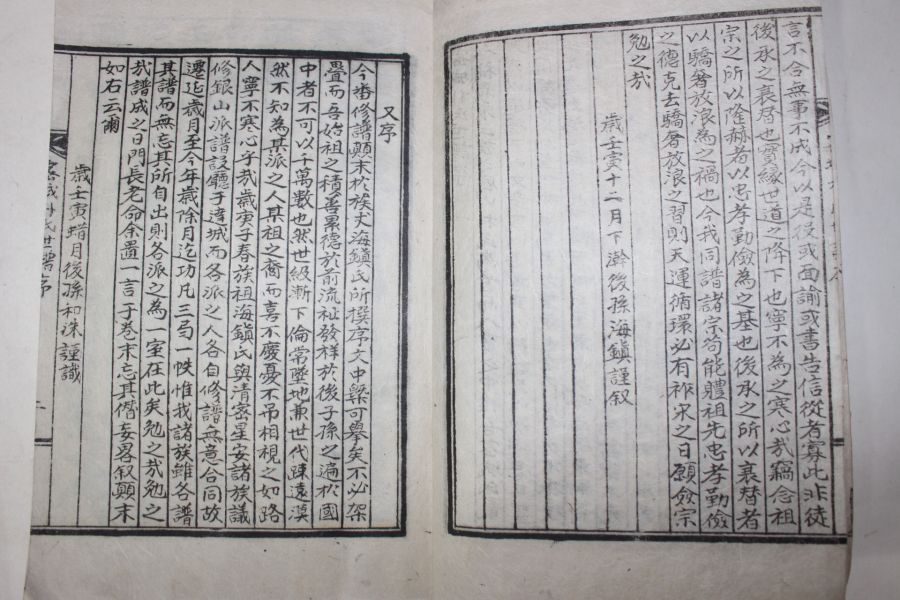 言不合無事不成今以是役或面諭或書告信從者寡此非徒
後承之衰居也實緣世道之降下也寧不為之寒心哉竊念祖
宗之所以隆赫者以忠孝勤儉為之基也後承之所以衰替者
以驕奢放浪為之禍也今我同譜諸宗苟能體祖先忠孝勤儉
之德克去驕奢放浪之習則天運循環必有祚宋之日願僉宗
勉之哉
歲壬寅十二月下澣後孫海鎭謹叙
又序
今番修譜顛末於族丈海鎭氏所撰序文中槩可擧矣不必架
疊而吾始祖之積善累德於前流祉發祥於後子孫之遍於國
中者不可以千萬數也然世級漸下倫常墜地兼世代踈遠漠
然不知為某派之人某祖之裔而喜不慶憂不吊相視之如路
人寧不寒心乎哉歲庚子春族祖海鎭氏與清密星安諸族議
修銀山派譜設廳于達城而各派之人各自修譜無意合同故
遷延歲月至今年歲除月迄功凡三弓一帙惟我諸族雖各譜
其譜而無忘其所自出則各派之為一室在此矣勉之哉勉之
哉譜成之日門長老命余置一言于卷末忘其僭妄畧叙顛末
如右云爾
歲壬寅蜡月後孫和洙謹識
世譜序
二